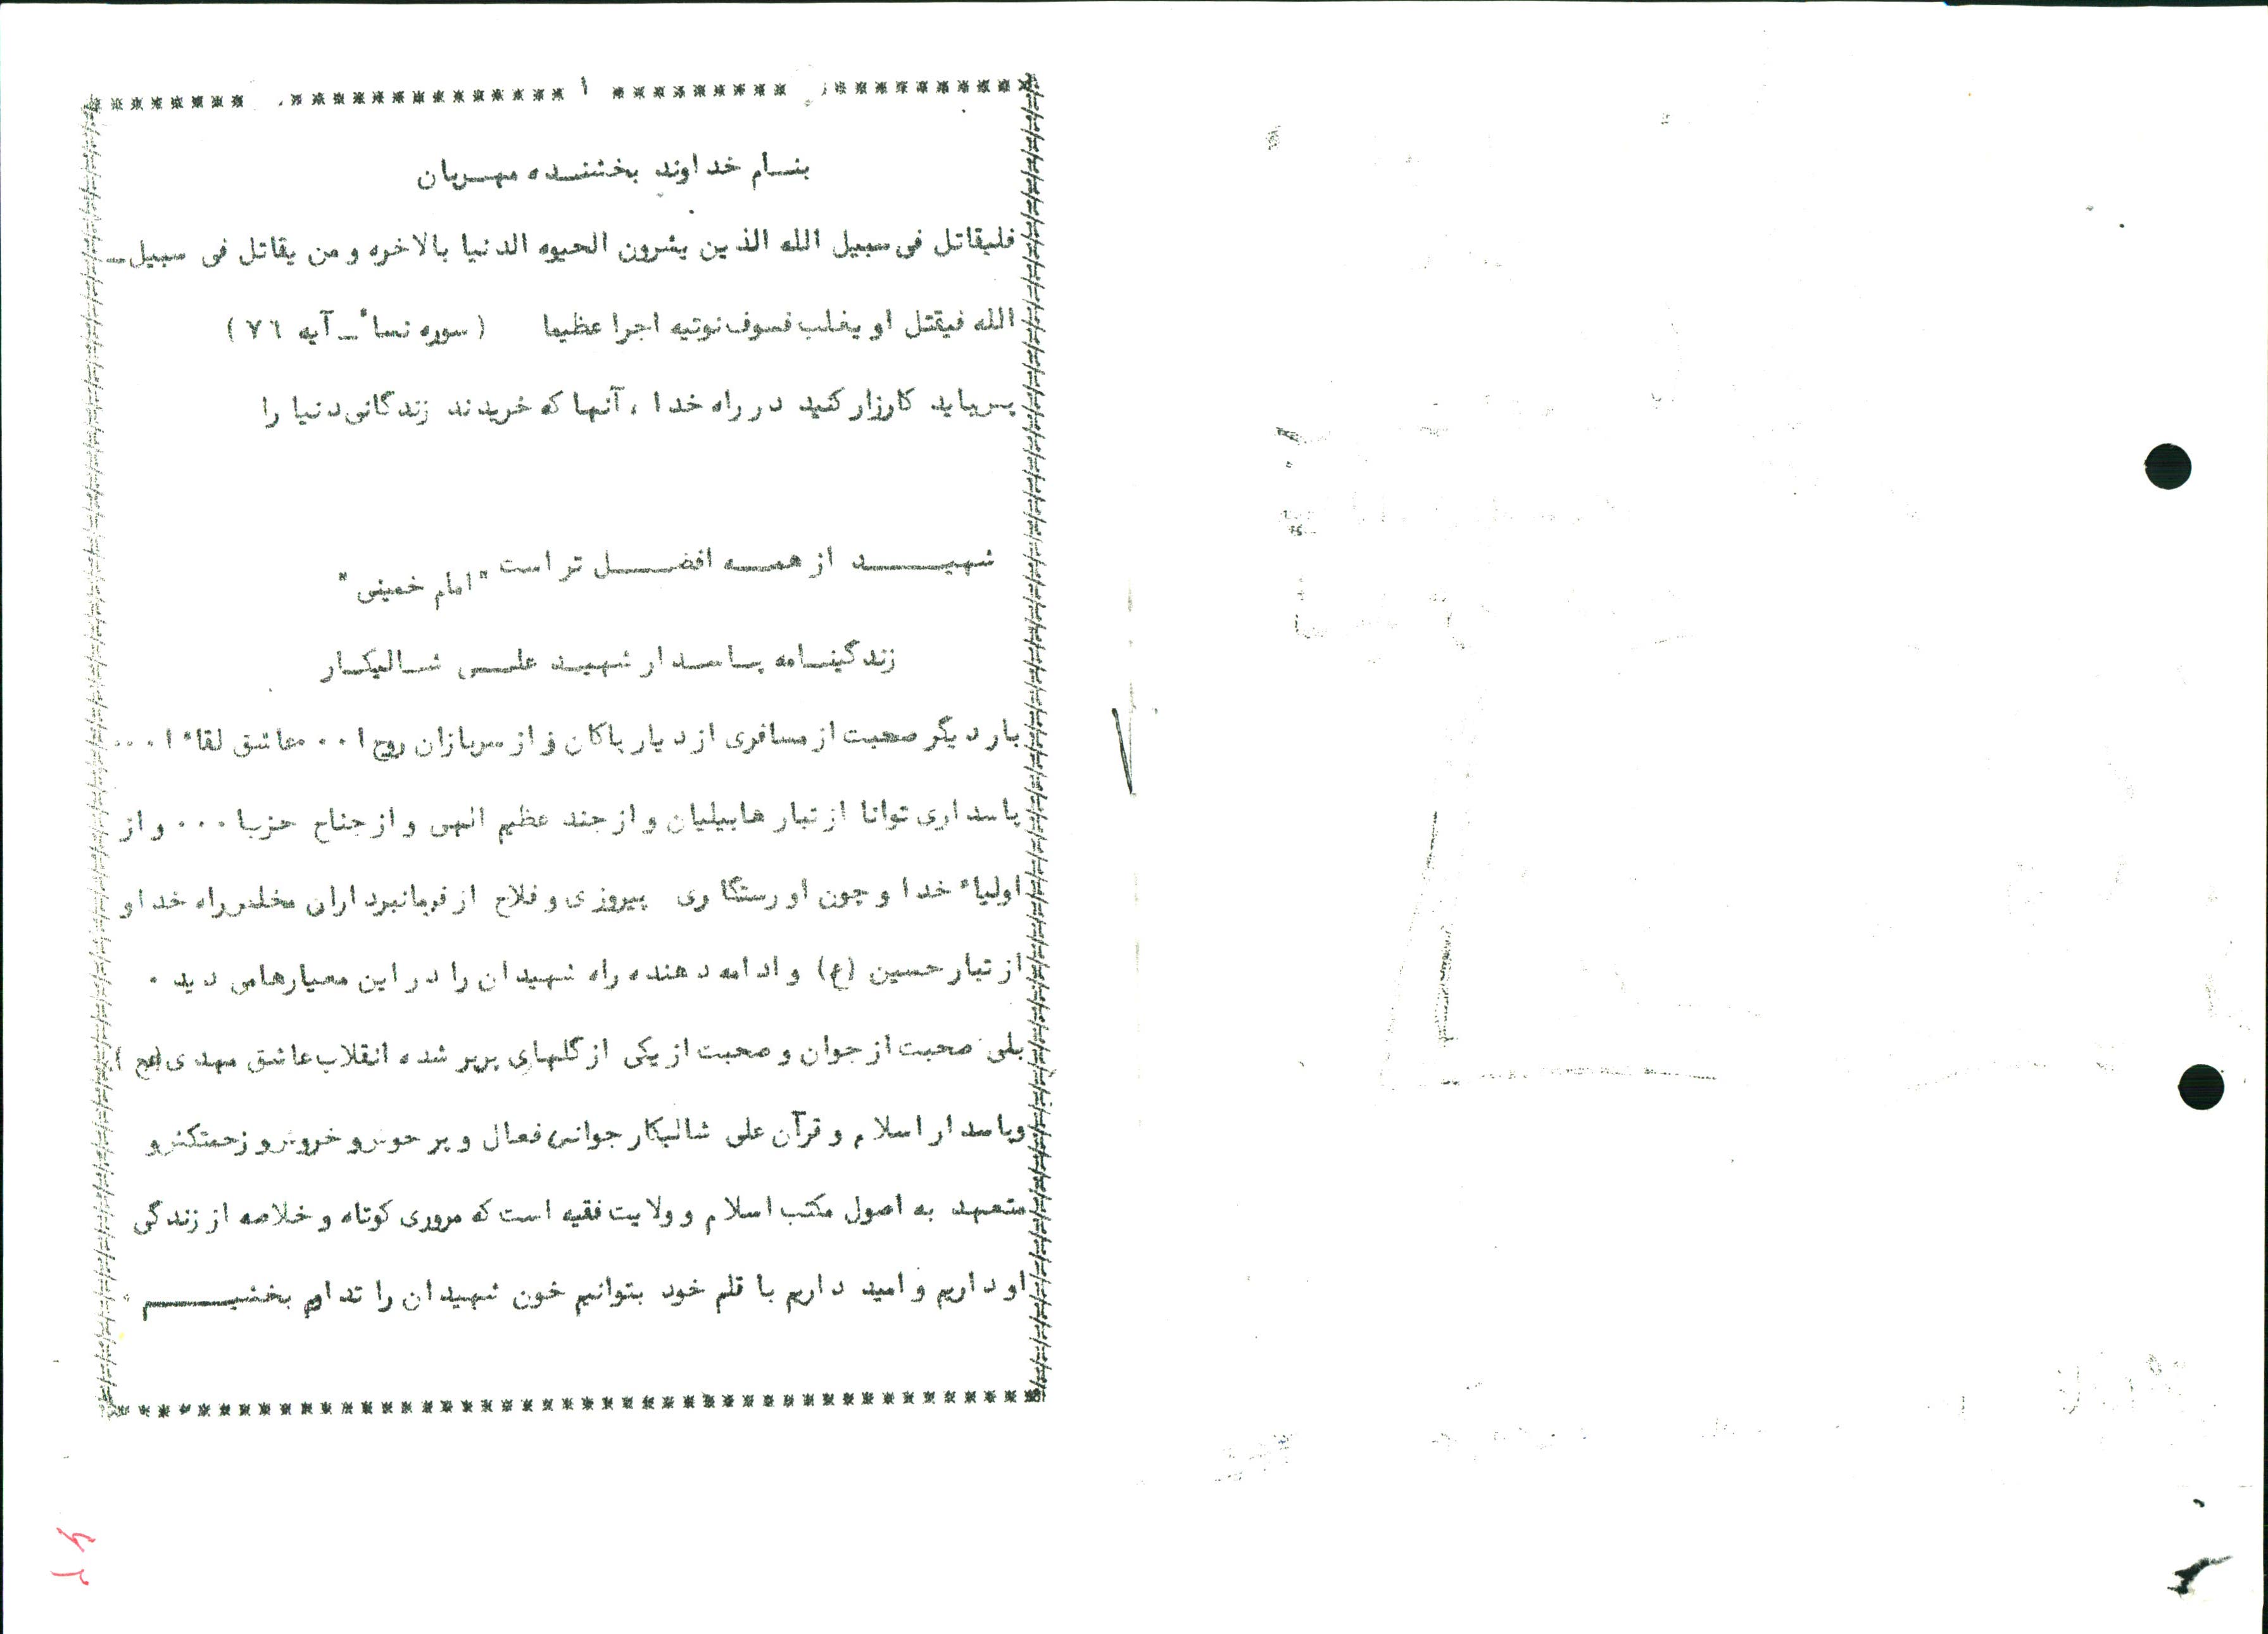 ۱
بنام خداوند بخشنده مهربان
فلیقاتل فی سبیل الله الذین یشرون الحیوه الدنیا بالاخره و من یقاتل فی سبیل_
الله فیقتل او یغلب فسوف نوتیه اجرا عظیما ( سوره نساء_ آیه ۷٦ )
پس باید کارزار کنید در راه خدا ، آنها که خریدند زندگانی دنیا را
شهید از همه افضل تر است "امام خمینی"
زندگینامه پاسدار شهید علی شالیکار
بار دیگر صحبت از مسافری از دیار پاکان و از سربازان روح ا ۰۰ عاشق لقاء ا ۰۰۰
پاسداری توانا از تبار هابیلیان و از جند عظیم الهی و از جناح حزب ا ۰۰۰ و از
اولیاء خدا و چون او رستگاری پیروزی و فلاح از فرمانبرداران مخلص راه خدا و
از تبار حسین (ع) و ادامه دهنده راه شهیدان را در این معیارها می دید ۰
بلی صحبت از جوان و صحبت از یکی از گلهای پرپر شده انقلاب عاشق مهدی (عج )
و پاسدار اسلام و قرآن علی شالیکار جوانی فعال و پر جوش و خروش و زحمتکش و
متعهد به اصول مکتب اسلام و ولایت فقیه است که مروری کوتاه و خلاصه از زندگی
او داریم و امید داریم با قلم خود بتوانیم خون شهیدان را تداوم بخشیم ۰